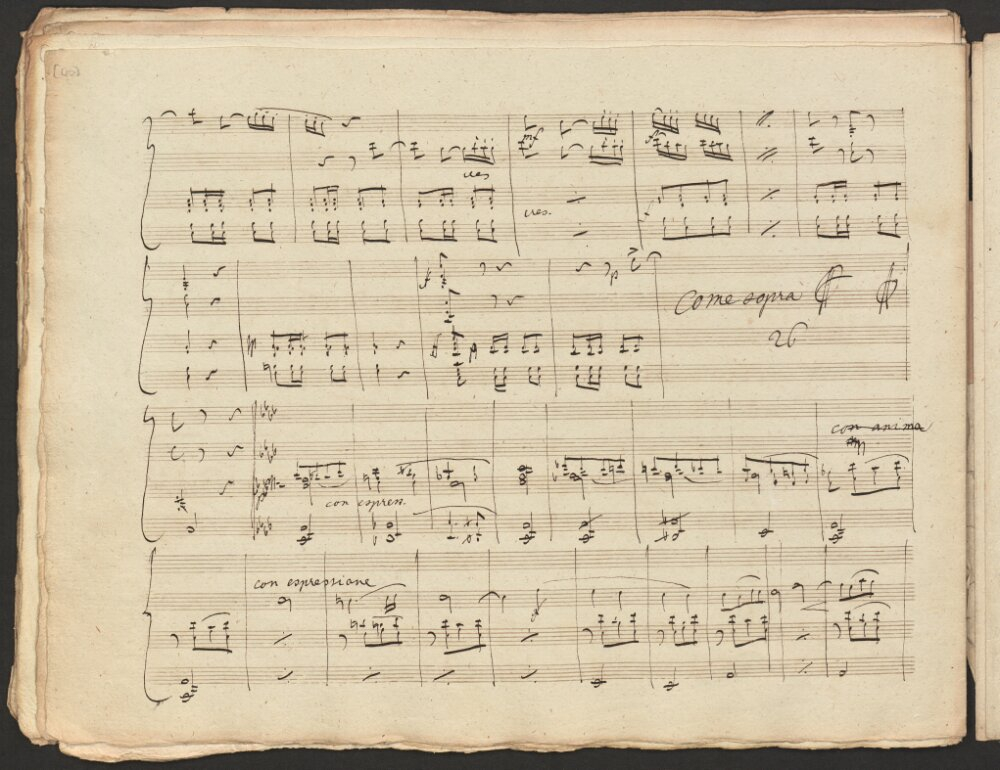 mf
cres
cres.
f
p
Come sopra
26
con anima
con espress.
con espressione